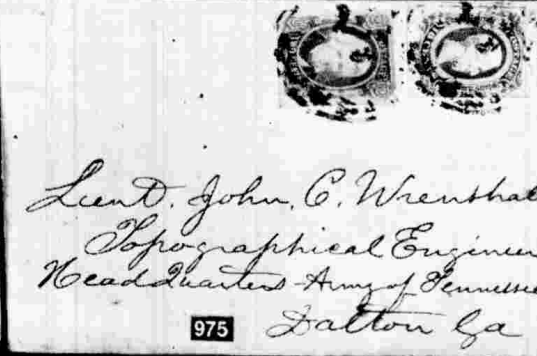 Lieut. John. C. Wrenshal
Topographical Engineer
Head Quarters Army of Tennessee
Dalton Ga
975